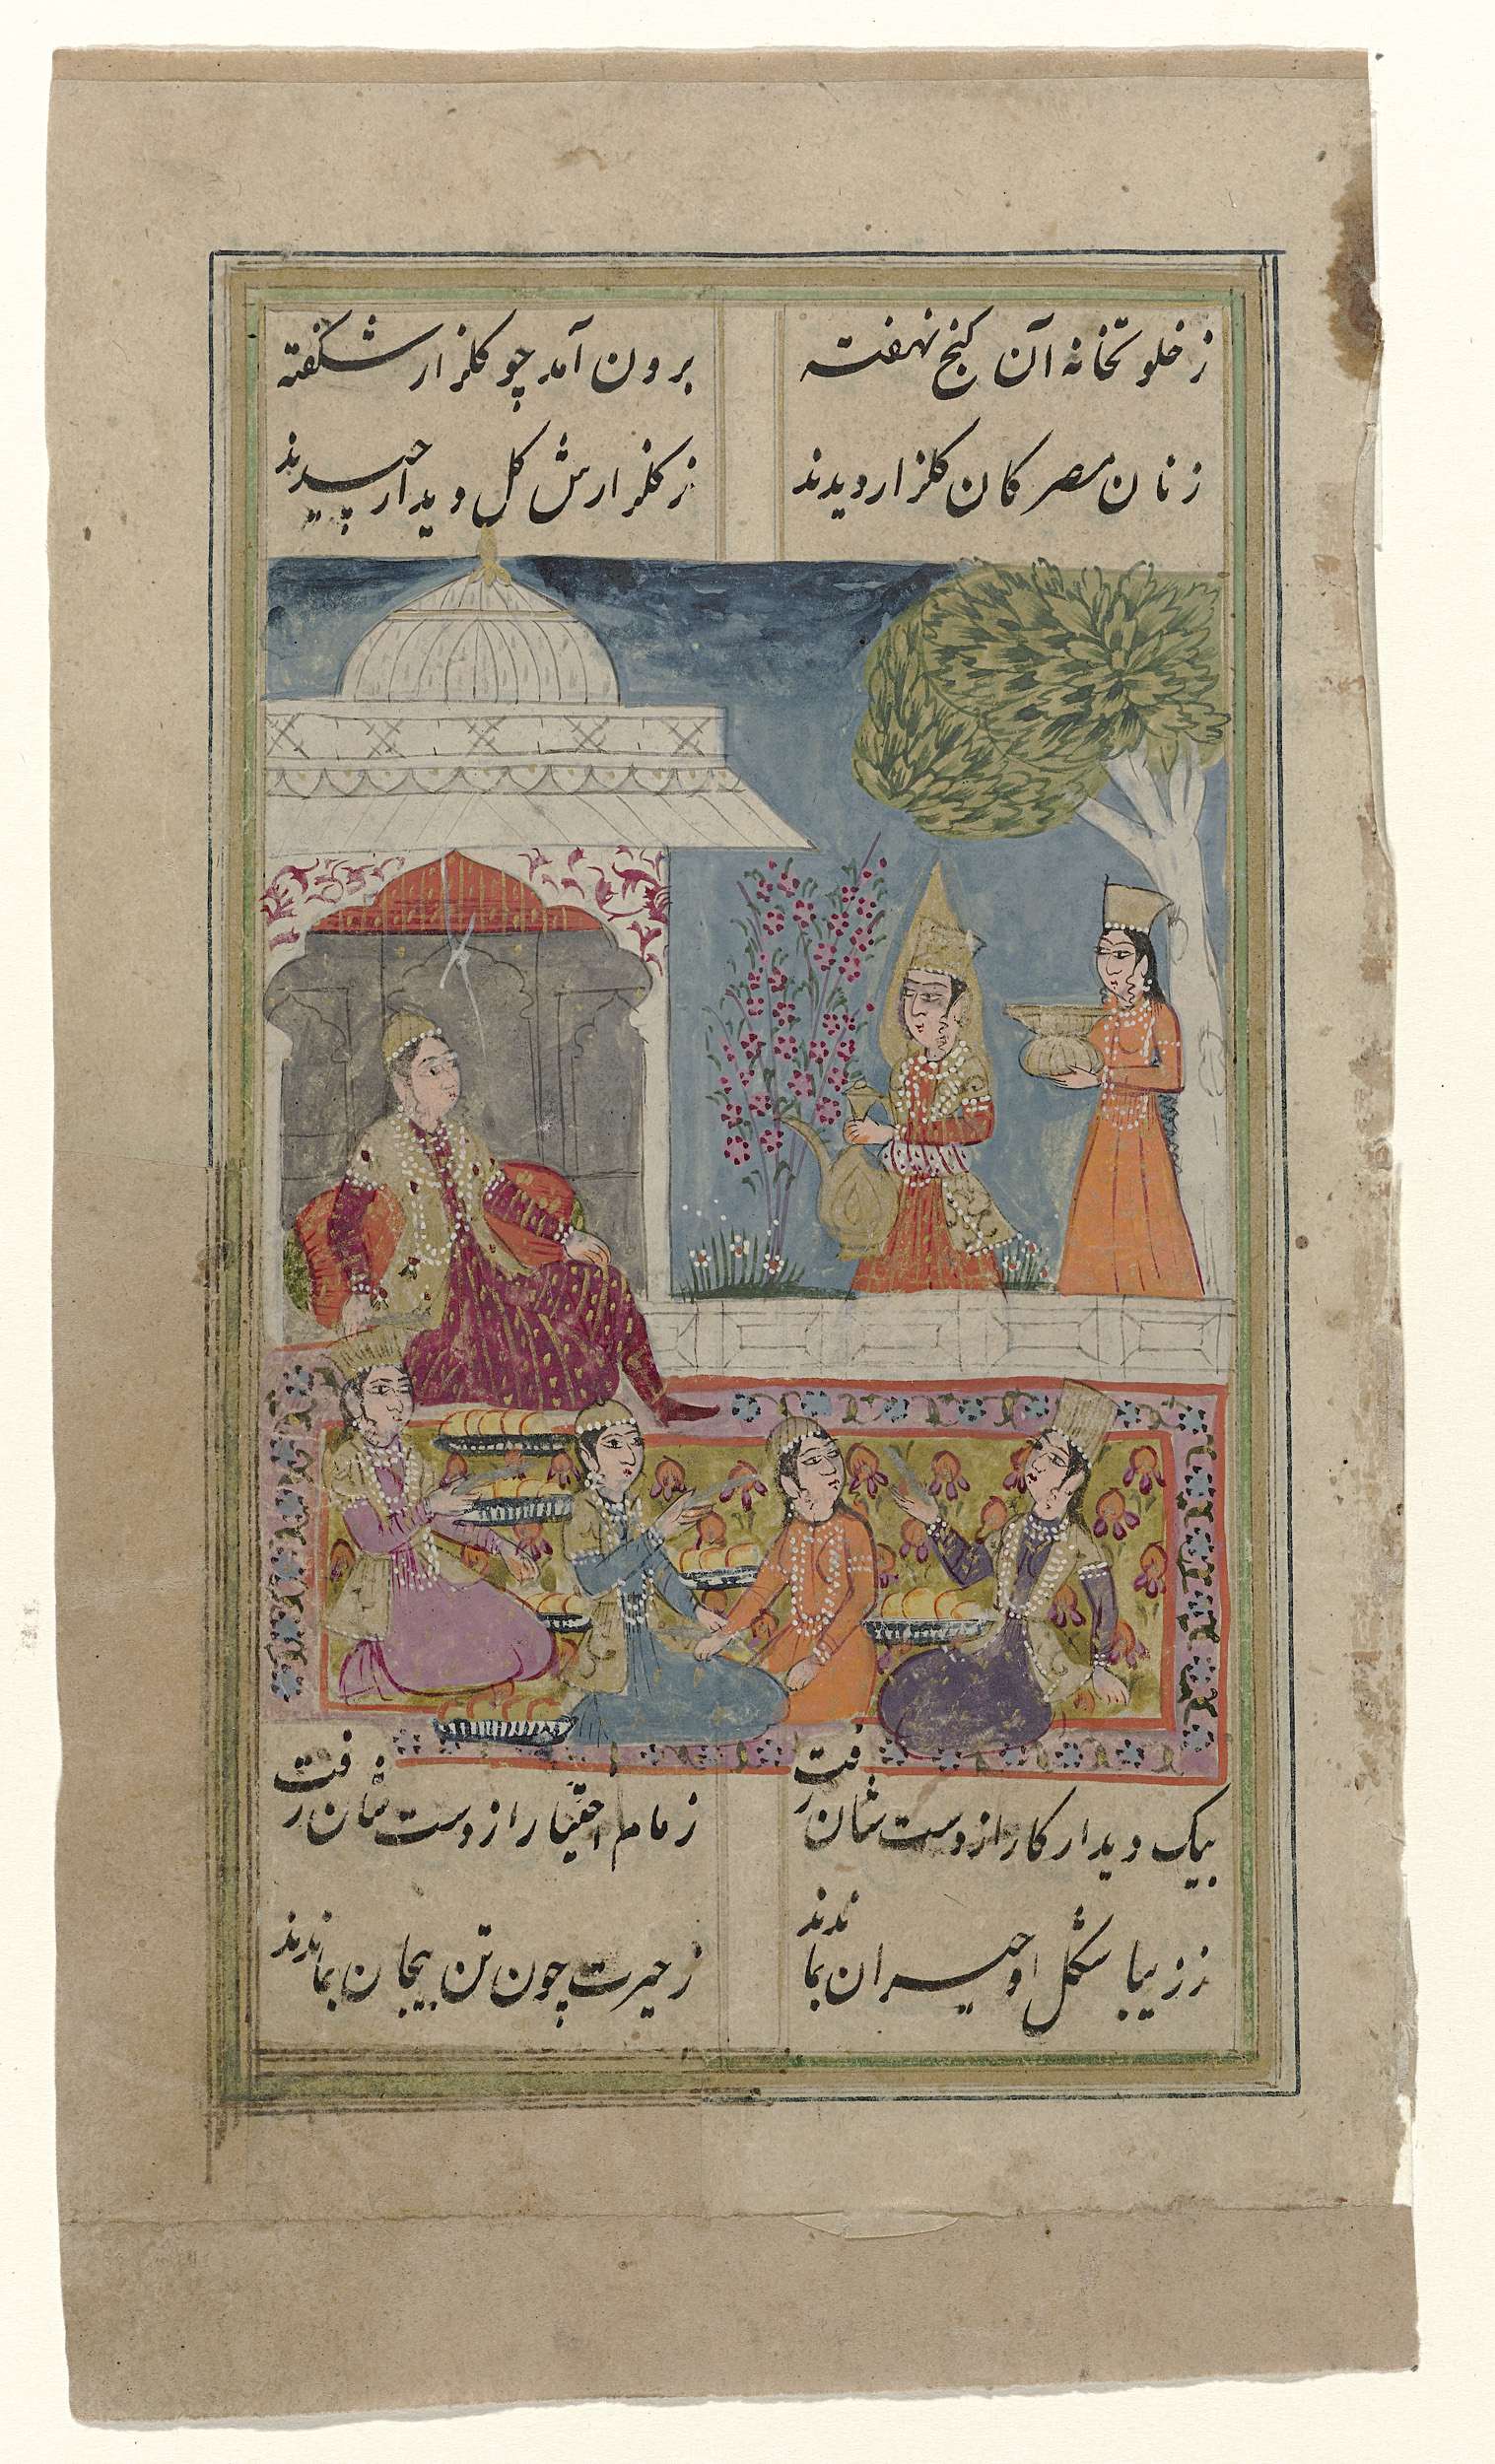 ز خلوتخانه آن کنج نهفته
برون آمد چو کلزار شکفته
زنان مصر کان کلزار دیدند
ز کلزارش کل دیدار چیدند
بیک دیدار کار از دست شان رفت
زمام اختیار از دست شان رفت
ز زیبا شکل او حیران بماندند
ز حیرت چون تن بیجان بماندند